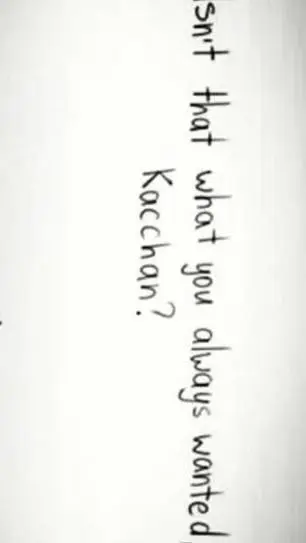 isn't that what you always wanted
Kacchan?